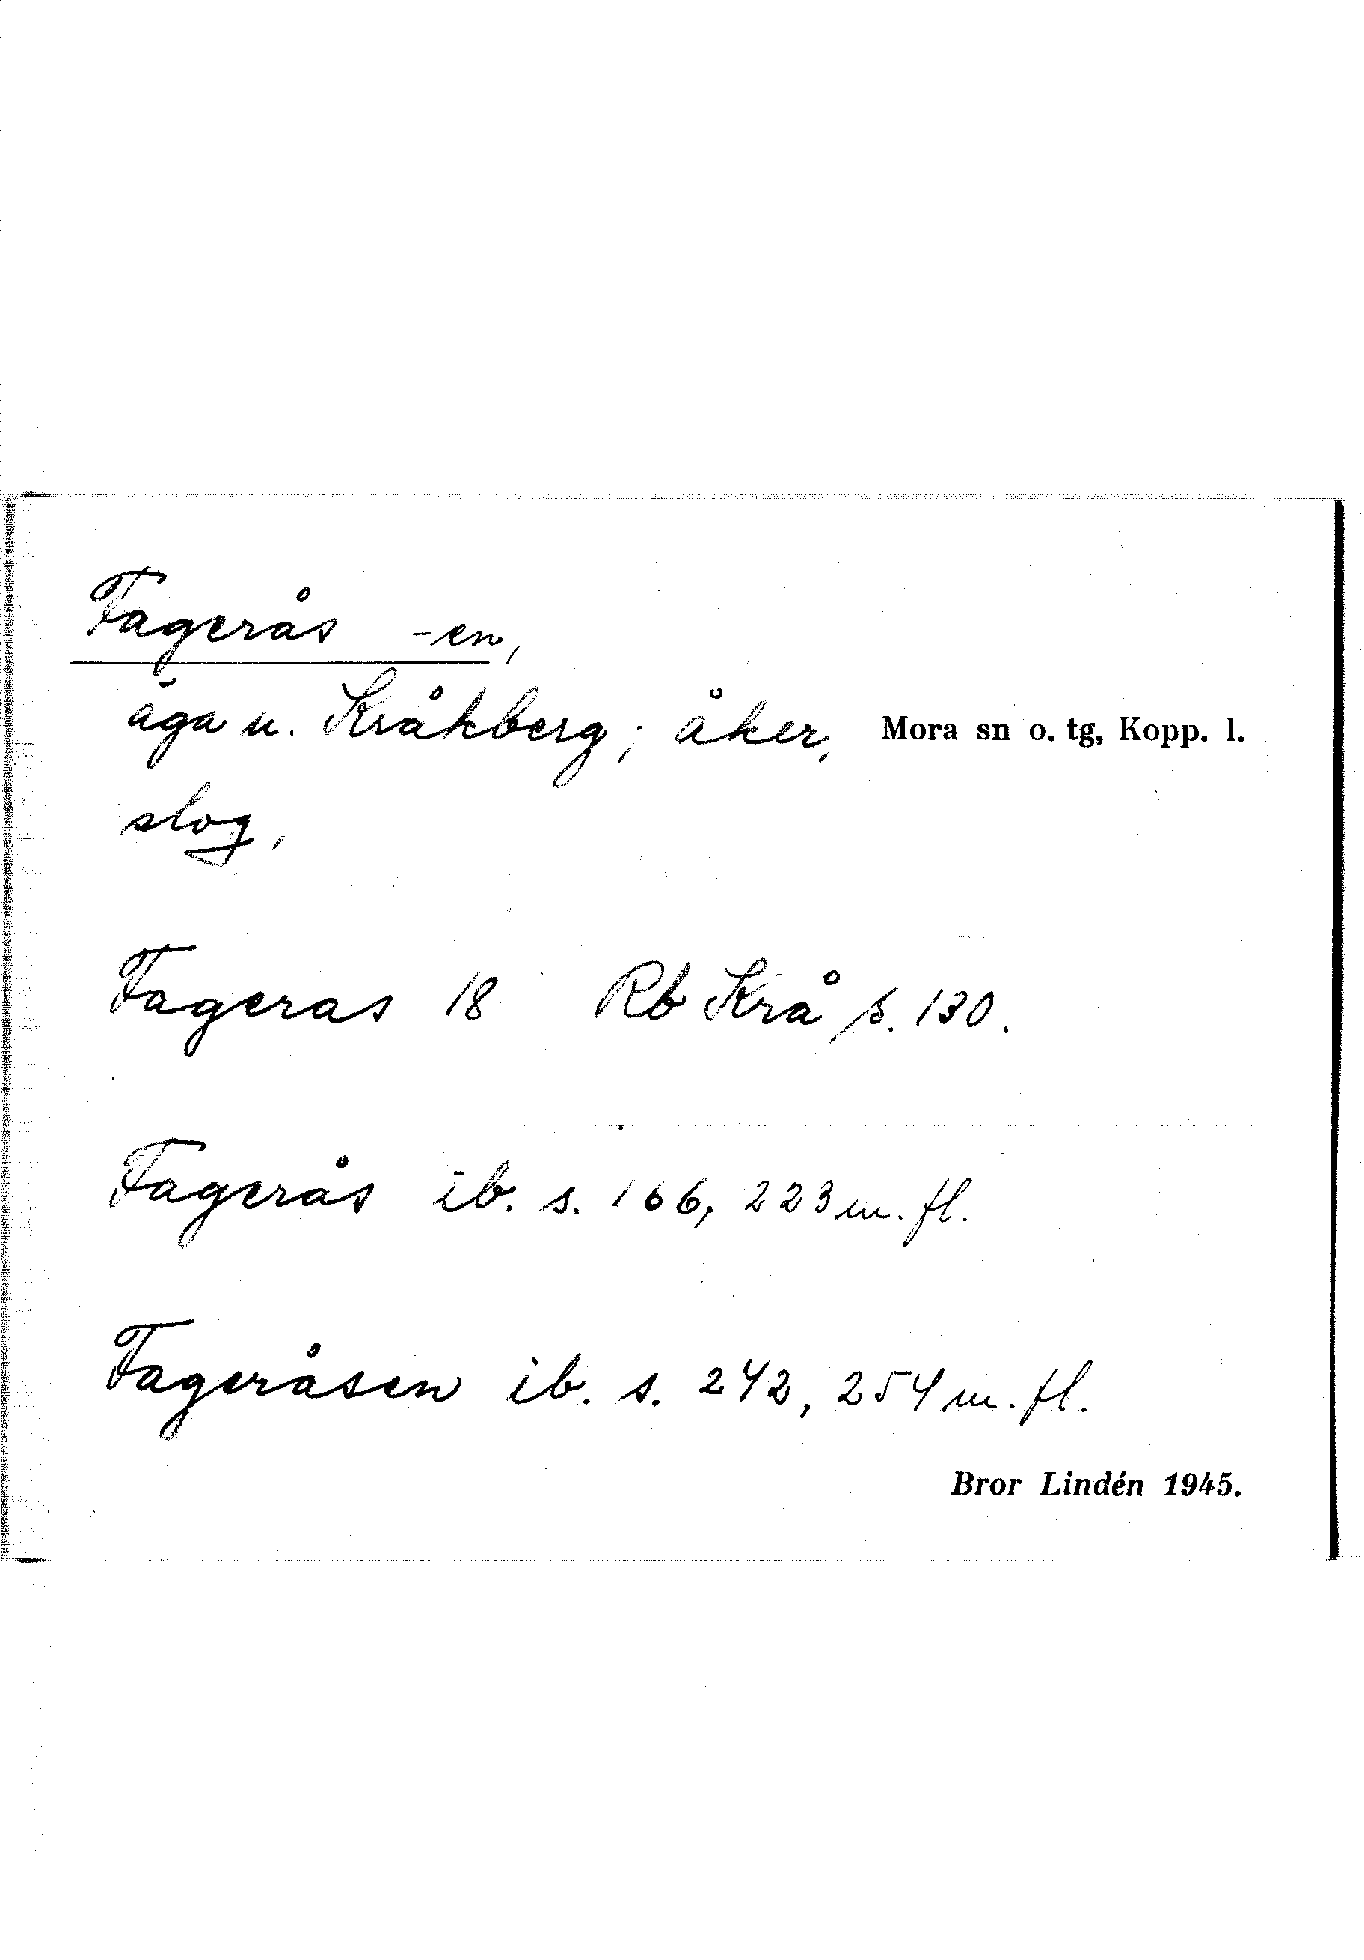 Fagerås -en,
äga u. Kråkberg; åker, Mora sn o. tg, Kopp. l.
slog,
Fageras 18 Rb Krå s. 130.
Fagerås ib. s. 166, 223 m. fl.
Fageråsen ib. s. 242, 254 m. fl.
Bror Lindén 1945.